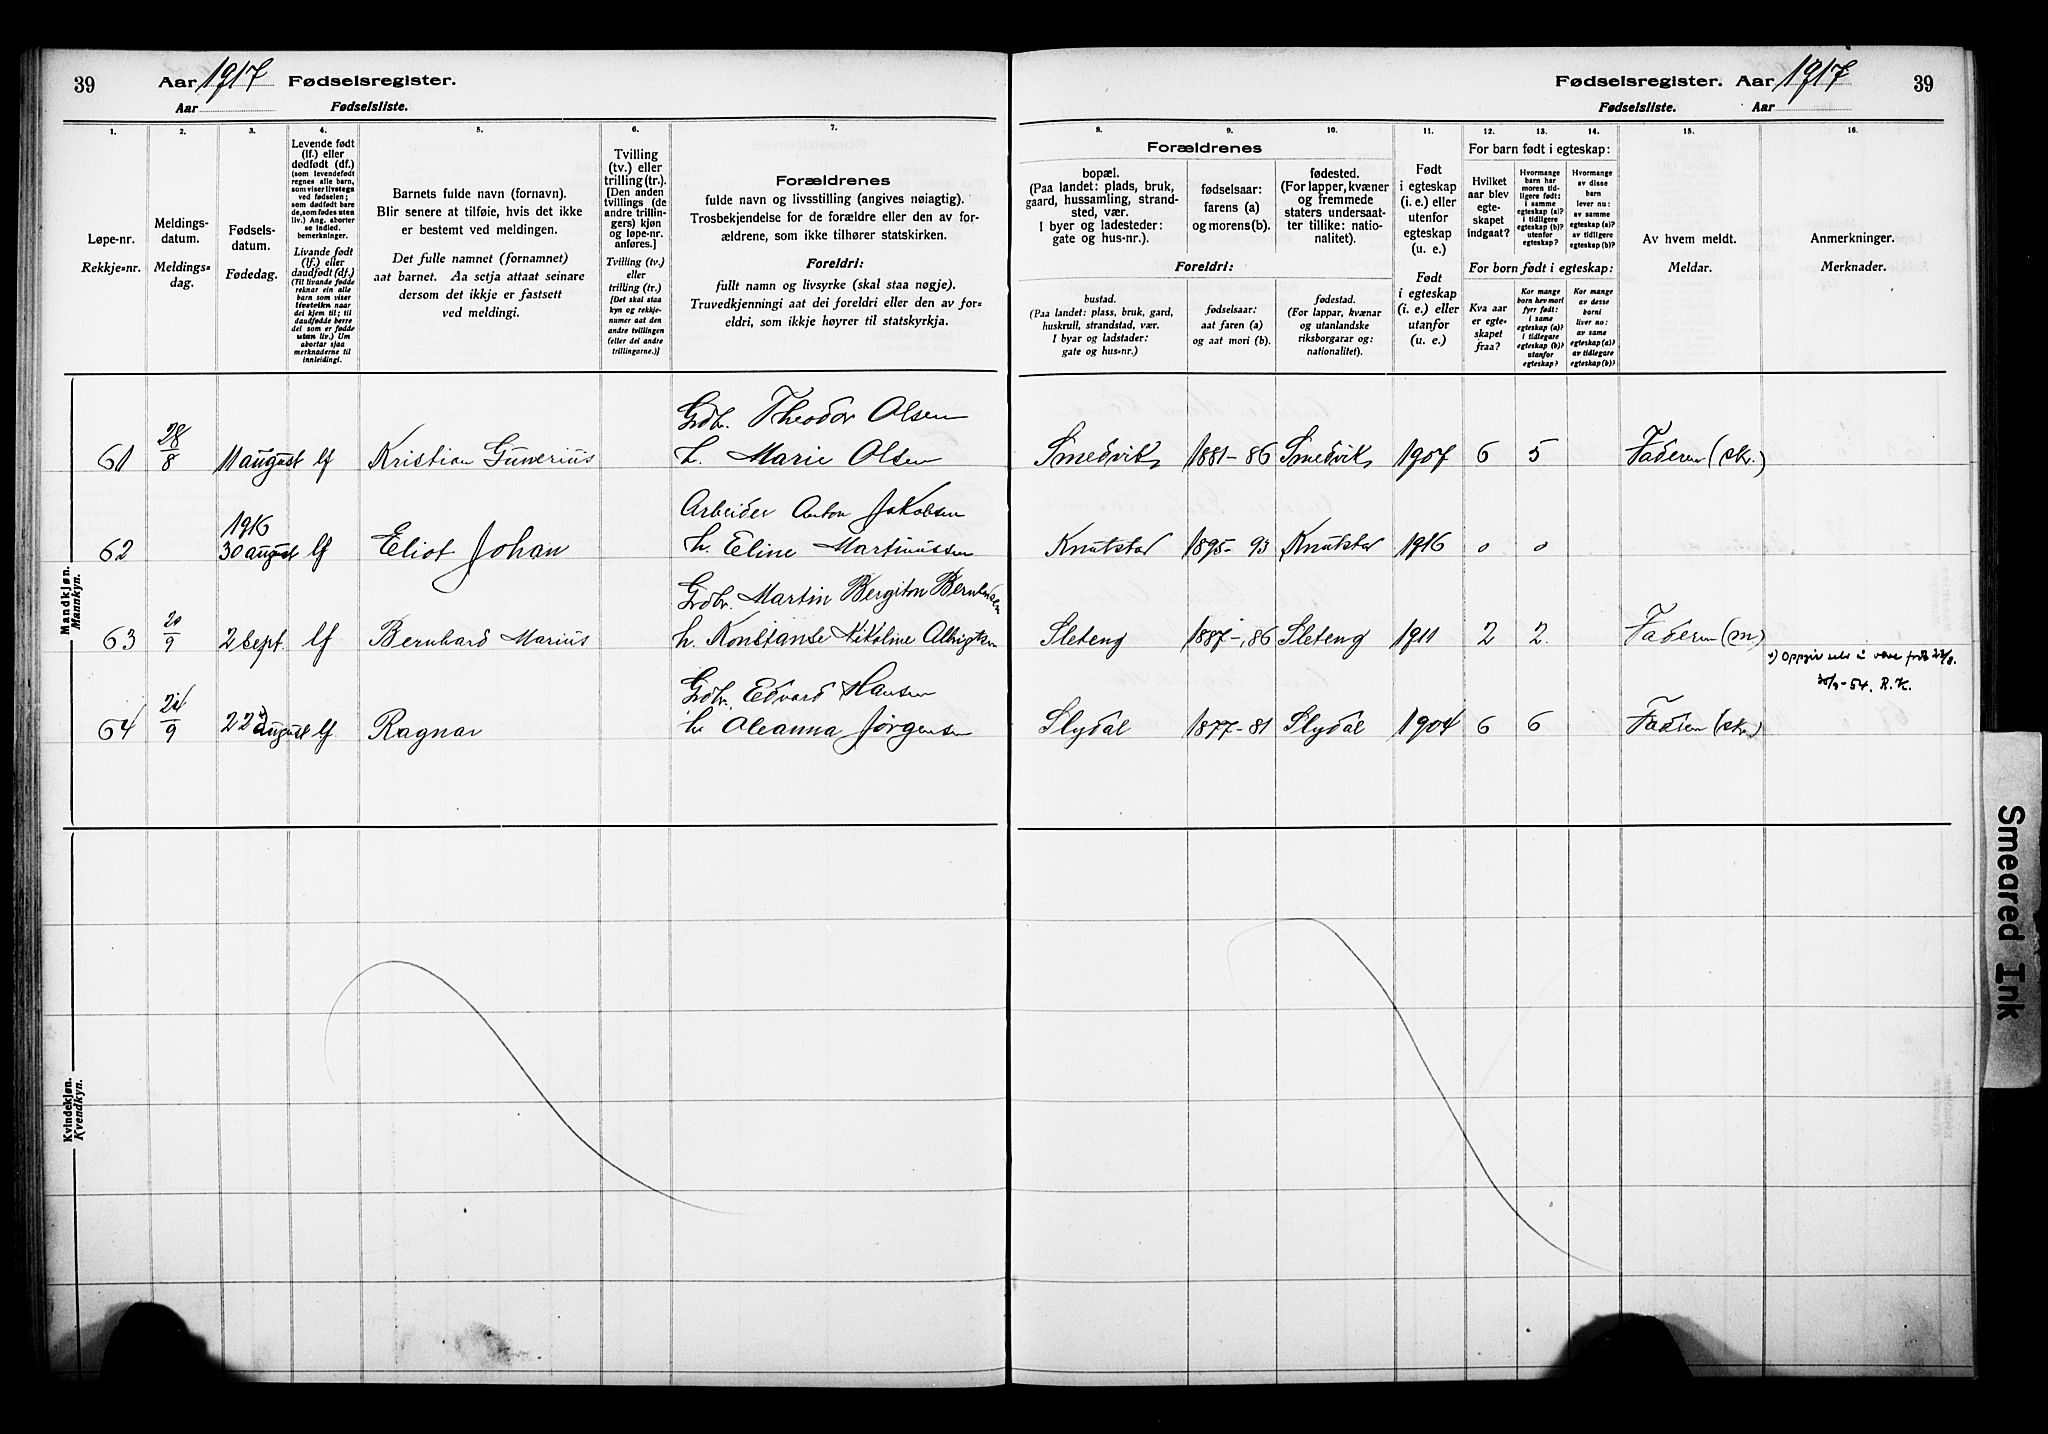 39 Aar 1917 Fødselsregister.
Aar Fødselsliste.
Fødselsregister. Aar 1917 39
Fødselsliste. Aar
1. 2. 3. 4. 5. 6. 7.
Løpe-nr.
Rekkje=nr.
Meldings-
datum.
Meldings=
dag.
Fødsels-
datum.
Fødedag.
Levende født
(lf.) eller
dødfødt (df.)
(som levendefødt
regnes alle barn,
som viser livstegn
ved fødselen;
som dødfødt bare
de, som fødes uten
liv.) Ang. aborter
se indled.
bemerkninger.
Livande født
(lf.) eller
daudfødt (df.)
(Til livande fødde
reknar ein alle
born som viser
livsteikn naar
dei kjem til; til
daudfødde berre
dei som er fødde
utan liv.) Um
abortar sjaa
merknaderne til
innleidingi.
Barnets fulde navn (fornavn).
Blir senere at tilføie, hvis det ikke
er bestemt ved meldingen.
Det fulle namnet (fornamnet)
aat barnet. Aa setja attaat seinare
dersom det ikkje er fastsett
ved meldingi.
Tvilling
(tv.) eller
trilling (tr.).
[Den anden
tvillings (de
andre trillin-
gers) kjøn
og løpe-nr.
anføres.]
Tvilling (tv.)
eller
trilling (tr.)
[Det skal staa
kyn og rekkje-
numer aat den
andre tvillingen
(eller dei andre
trillingarne.)]
Forældrenes
fulde navn og livsstilling (angives nøiagtig).
Trosbekjendelse for de forældre eller den av for-
ældrene, som ikke tilhører statskirken.
Foreldri:
fullt namn og livsyrke (skal staa nøgje).
Truvedkjenningi aat dei foreldri eller den av for=
eldri, som ikkje høyrer til statskyrkja.
8. 9. 10. 11. 12. 13. 14. 15. 16.
Forældrenes
bopæl.
(Paa landet: plads, bruk,
gaard, hussamling, strand-
sted, vær.
I byer og ladesteder:
gate og hus-nr.).
fødselsaar:
farens (a)
og morens (b).
fødested.
(For lapper, kvæner
og fremmede
staters undersaat-
ter tillike: natio-
nalitet).
Foreldri:
bustad.
(Paa landet: plass, bruk, gard,
huskrull, strandstad, vær.
I byar og ladstader:
gate og hus=nr.)
fødselsaar:
aat faren (a)
og aat mori (b).
fødestad.
(For lappar, kvænar
og utanlandske
riksborgarar og:
nationalitet).
Født
i egteskap
(i. e.) eller
utenfor
egteskap
(u. e.)
Født
i egteskap
(i. e.) eller
utanfor
(u. e.)
For barn født i egteskap:
Hvilket
aar blev
egte-
skapet
indgaat?
Hvormange
barn har
moren tid-
ligere født:
i samme
egteskap (a)?
i tidligere
egteskap (b)?
utenfor
egteskap?
Hvormange
av disse
barn
lever nu:
av samme
egteskap (a)?
av tidligere
egteskap (b)?
For born født i egteskap:
Kva aar
er egte-
skapet
fraa?
Kor mange
born hev mori
fyrr født:
i same
egteskap (a)?
i tidlegare
egteskap (b)?
utanfor
egteskap?
Kor mange
av desse
borni
liver no:
av same
egteskap (a)?
av tidlegare
egteskap (b)?
Av hvem meldt.
Meldar.
Anmerkninger.
Merknader.
Mandkjøn.
Mannkyn.
Gdbr. Theodor Olsen
61 28/8 11 august lf Kristian Gunerius h. Marie Olsen Smedvik 1881-86 Smedvik 1907 6 5 Faderen (skr.)
Arbeider Anton Jakobsen
1916
62 30 august lf Eliot Johan h. Eline Martinussen Knutstad 1895-93 Knutstad 1916 0 0
Gdbr. Martin Bergiton Berntsen
63 20/9 2 sept. lf Bernhard Marius h. Konstanse Nikoline Albrigtsen Sleteng 1887-86 Sleteng 1911 2 2 Faderen (m)
x) Oppgir selv å være født 23/8.
30/9-54. R.K.
Gdbr. Edvard Hansen
64 24/9 22 august lf Ragnar h. Oleanna Jørgensen Slydal 1877-81 Slydal 1904 6 6 Faderen (skr.)
Kvindekjøn.
Kvendkyn.
Smeared Ink